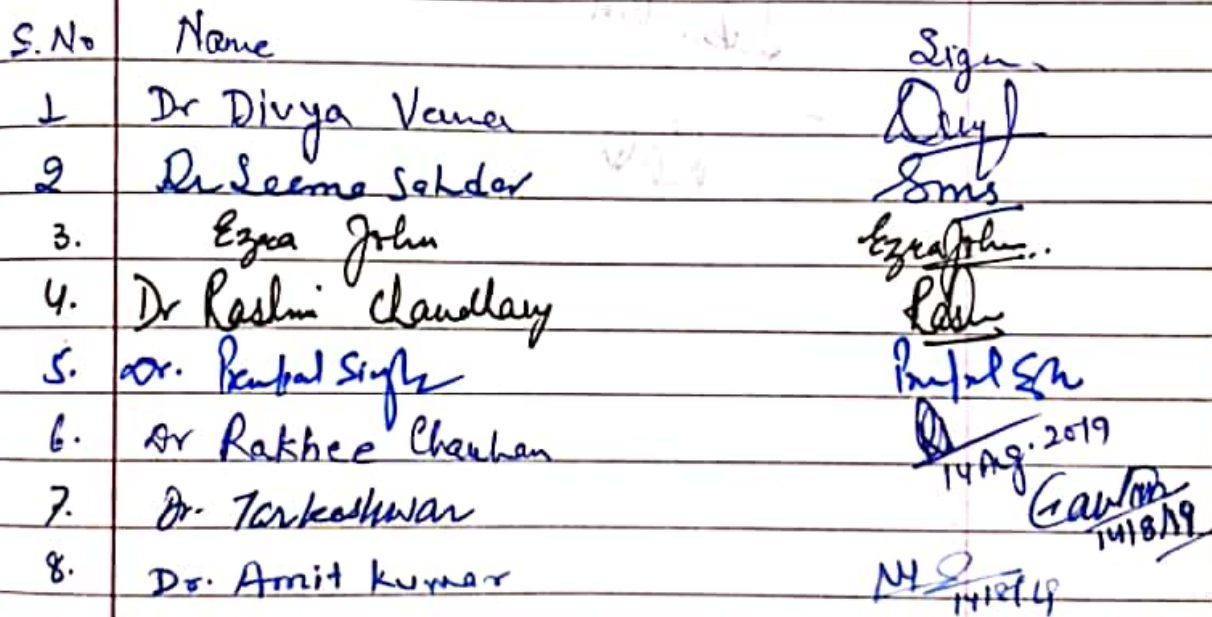 S. No Name Sign.
1 Dr Divya Verma
2 Dr Seema Sahdev Sms
3. Ezra John Ezra John..
4. Dr Rashmi Chaudhary Rash
5. Dr. Singh
6. Dr Rakhee Chauhan 14 Aug. 2019
7. Dr. Tarkeshwar Gautam 14/8/19
8. Dr. Amit Kumar 14/8/19